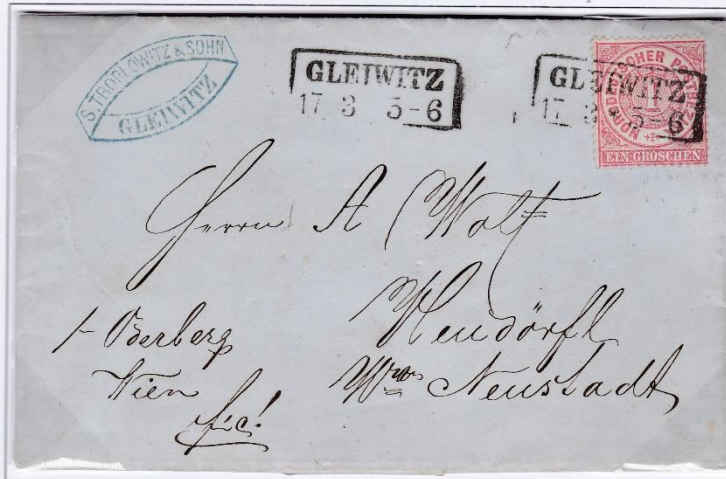 S. TROPLOWITZ & SOHN
GLEIWITZ
GLEIWITZ
17 3 5-6
GLEIWITZ
17 3 5-6
NORDDEUTSCHER POSTBEZIRK
1
EIN GROSCHEN
Herrn A Wolf
Neudörfl
Wr Neustadt
Oerberg
Wien